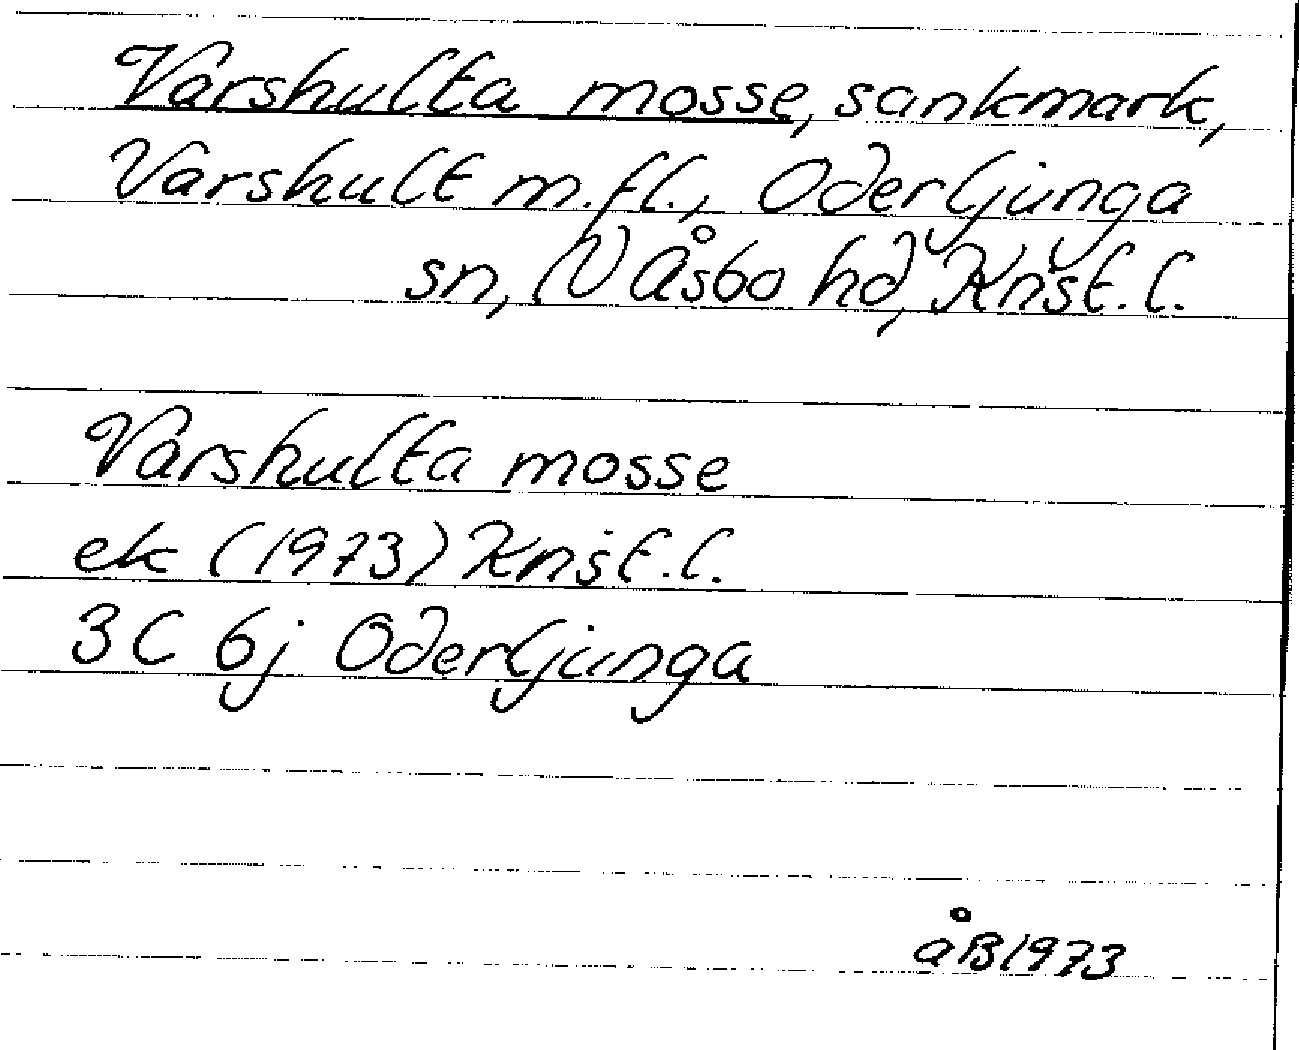 Varshulta mosse, sankmark,
Varshult m.fl., Oderljunga
sn, N Åsbo hd, Krist.l.
Varshulta mosse
ek (1973) Krist.l.
3C 6j Oderljunga
åB 1973